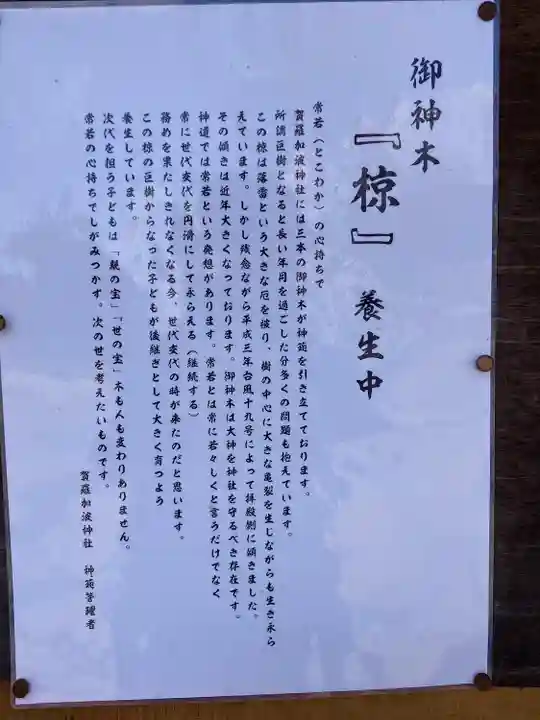 御神木
『椋』 養生中
常若(とこわか)の心持ちで
賀羅加波神社には三本の御神木が神苑を引き立てております。
所謂巨樹となると長い年月を過ごした分多くの問題も抱えています。
この椋は落雷という大きな厄を被り、樹の中心に大きな亀裂を生じながらも生き永ら
えています。しかし残念ながら平成三年台風十九号によって拝殿側に傾きました。
その傾きは近年大きくなっております。御神木は大神を神社を守るべき存在です。
神道では常若という発想があります。常若とは常に若々しくと言うだけでなく
常に世代交代を円滑にして永らえる(継続する)
務めを果たしきれなくなる今、世代交代の時が来たのだと思います。
この椋の巨樹からなった子どもが後継ぎとして大きく育つよう
養生しています。
次代を担う子どもは「親の宝」「世の宝」木も人も変わりありません。
常若の心持ちでしがみつかず。次の世を考えたいものです。
賀羅加波神社 神苑管理者